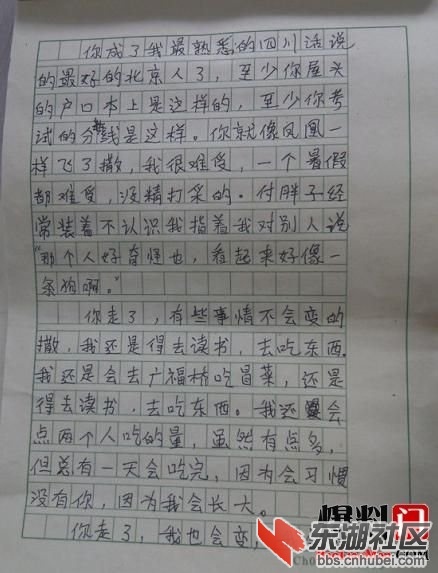 你成了我最熟悉的四川话说
的最好的北京人了，至少你屋头
的户口本上是这样的，至少你考
试的分数线是这样。你就像凤凰一
样飞了撒，我很难受，一个暑假
都难受，没精打采的。付胖子经
常装着不认识我指着我对别人说
“那个人好奇怪也，看起来好像一
条狗啊。”
你走了，有些事情不会变的
撒，我还是得去读书，去吃东西。
我还是会去广福桥吃冒菜，还是
得去读书，去吃东西。我还会
点两个人吃的量，虽然有点多，
但总有一天会吃完，因为会习惯
没有你，因为我会长大。
你走了，我也会变，
爆料门
东湖社区
bbs.cnhubei.com